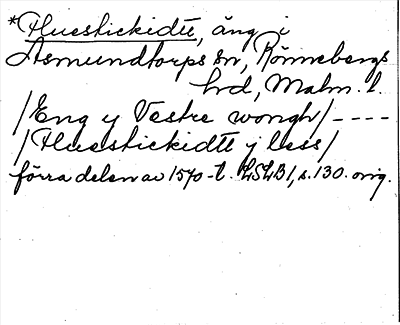 *Huestickidtt, äng i
Asmundtorps sn, Rönnebergs
hrd, Malm. l.
/Eng y Vestre wongh/----
/Huestickidtt y less/
förra delen av 1570-t. LSLB1, s. 130. orig.